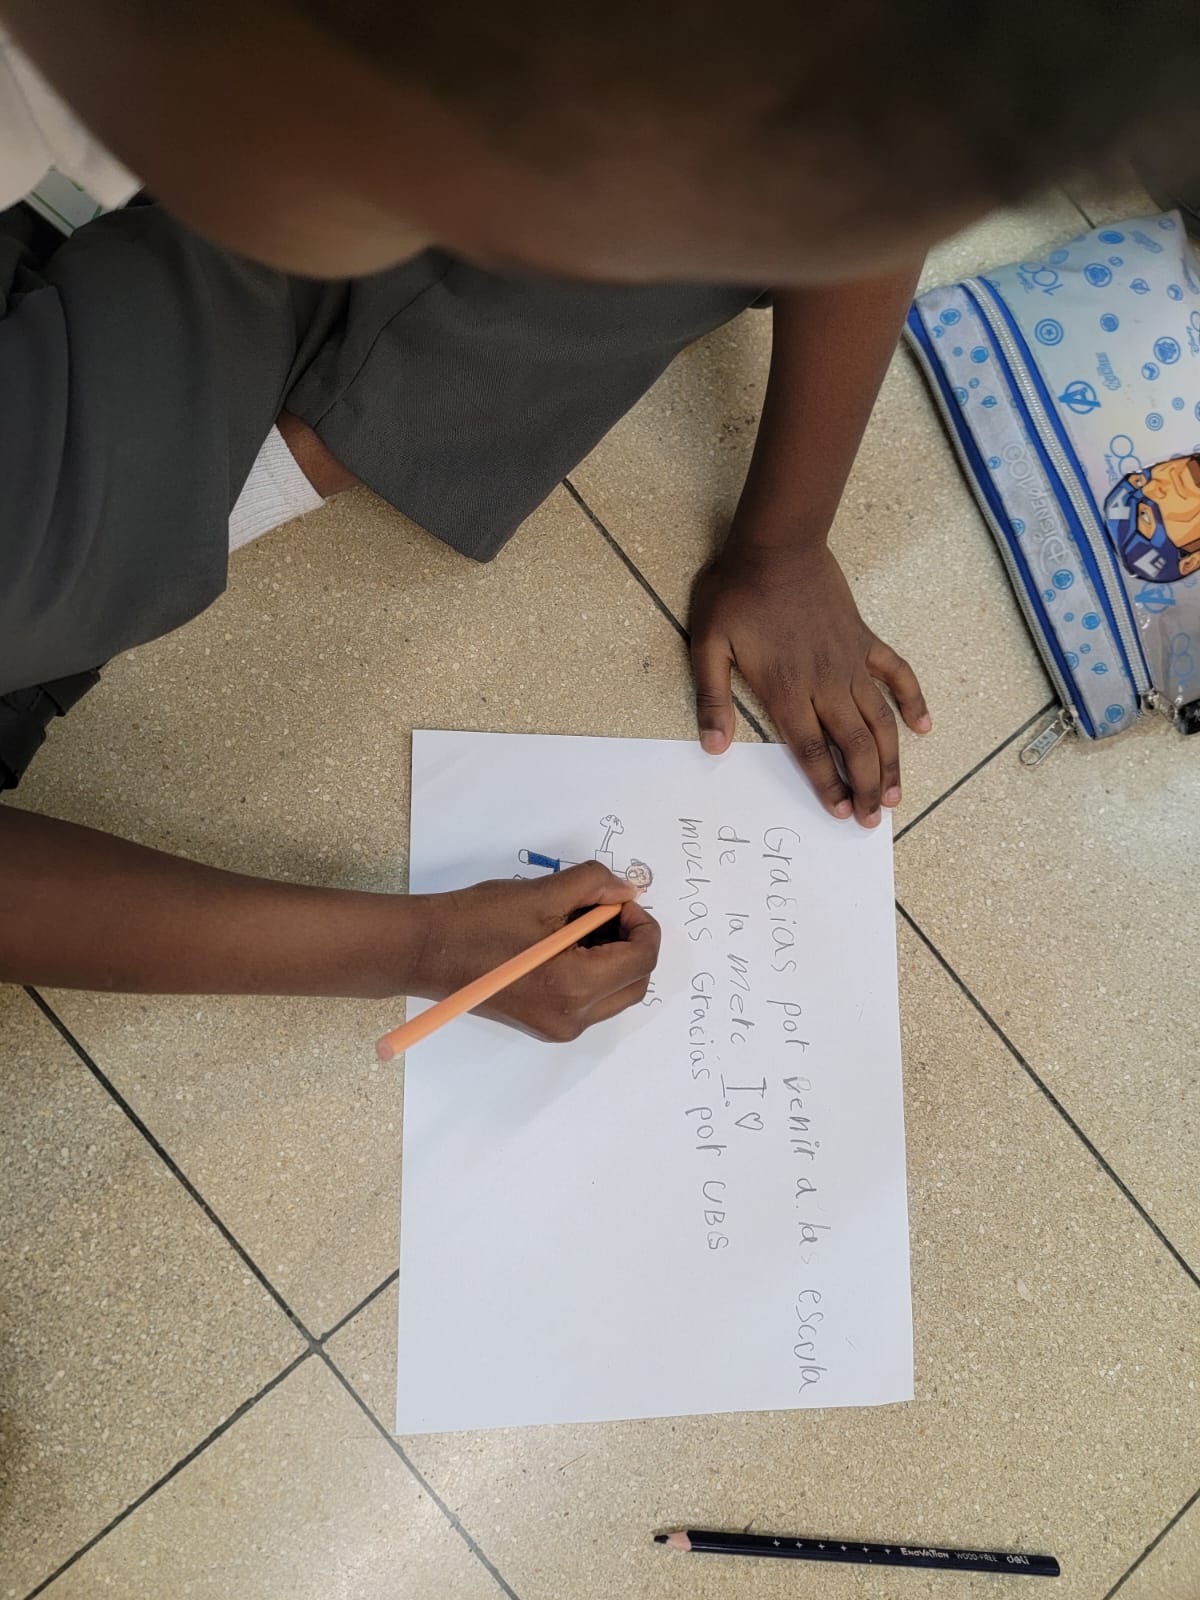 Gracias por venir a las escula
de la merc I ♡
muchas Gracias por UBS
us
Disney100
100
ENOVATION WOOD-FREE deli